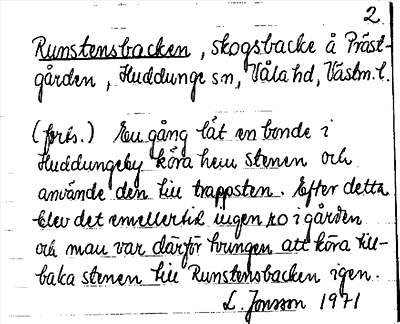 2.
Runstensbacken, skogsbacke å Präst-
gården, Huddunge sn, Våla hd, Västm. l.
(forts.) En gång lät en bonde i
Huddungeby köra hem stenen och
använde den till trappsten. Efter detta
blev det emellertid ingen ro i gården
och man var därför tvungen att köra till-
baka stenen till Runstensbacken igen.
L. Jonsson 1971